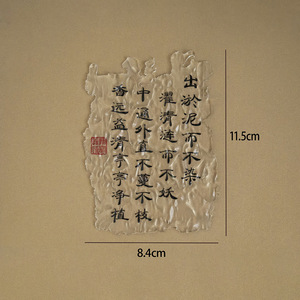 出淤泥而不染
濯清涟而不妖
中通外直不蔓不枝
香远益清亭亭净植
11.5cm
8.4cm